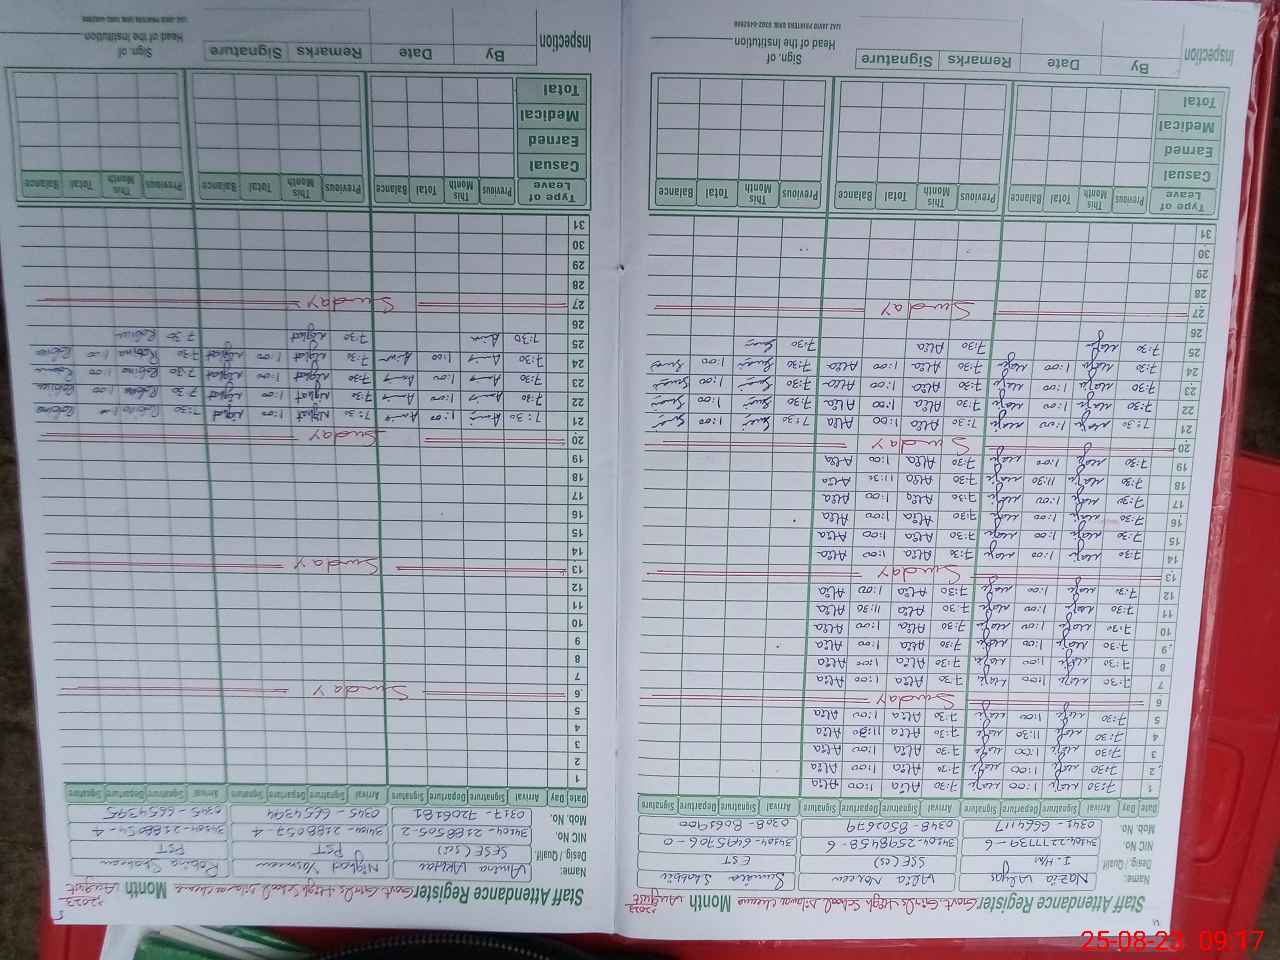 4
Staff Attendance Register Govt. Girls High School Dilawar Cheema Month August 2023
Name: Nazia Ilyas Alia Noreen Sumaira Shabbir
Desig / Qualif. I. H/M SSE (cs) EST
NIC No. 34104-2598458-6 34104-6495706-0
Mob. No. 0341-6664117 0348-8502679 0308-8061900
Date Day Arrival Signature Departure Signature Arrival Signature Departure Signature Arrival Signature Departure Signature
1 7:30 1:00 7:30 Alia 1:00 Alia
2 7:30 1:00 7:30 Alia 1:00 Alia
3 7:30 1:00 7:30 Alia 1:00 Alia
4 7:30 11:30 7:30 Alia 11:30 Alia
5 7:30 1:00 7:30 Alia 1:00 Alia
6 Sunday
7 7:30 1:00 7:30 Alia 1:00 Alia
8 7:30 1:00 7:30 Alia 1:00 Alia
9 7:30 1:00 7:30 Alia 1:00 Alia
10 7:30 1:00 7:30 Alia 1:00 Alia
11 7:30 1:00 7:30 Alia 11:30 Alia
12 7:30 1:00 7:30 Alia 1:00 Alia
13 Sunday
14 7:30 1:00 7:30 Alia 1:00 Alia
15 7:30 1:00 7:30 Alia 1:00 Alia
16 7:30 1:00 7:30 Alia 1:00 Alia
17 7:30 1:00 7:30 Alia 1:00 Alia
18 7:30 11:30 7:30 Alia 11:30 Alia
19 7:30 1:00 7:30 Alia 1:00 Alia
20 Sunday
21 7:30 1:00 7:30 Alia 1:00 Alia 7:30 1:00
22 7:30 1:00 7:30 Alia 1:00 Alia 7:30 1:00
23 7:30 1:00 7:30 Alia 1:00 Alia 7:30 1:00
24 7:30 1:00 7:30 Alia 1:00 Alia 7:30 1:00
25 7:30 7:30 Alia 7:30
26
27 Sunday
28
29
30
31
Type of Leave Previous This Month Total Balance Previous This Month Total Balance Previous This Month Total Balance
Casual
Earned
Medical
Total
Inspection By Date Remarks Signature Sign. of Head of the Institution
5
Staff Attendance Register Govt. Girls High School Dilawar Cheema Month August 2023
Name: Amina Iftikhar Nighat Yasmeen Robina Shaheen
Desig / Qualif. SESE (sci) PST PST
NIC No. 34104-2188505-2 34104-2188057-4 34104-2188054-4
Mob. No. 0317-7206181 0345-6654394 0345-6654395
Date Day Arrival Signature Departure Signature Arrival Signature Departure Signature Arrival Signature Departure Signature
1
2
3
4
5
6 Sunday
7
8
9
10
11
12
13 Sunday
14
15
16
17
18
19
20 Sunday
21 7:30 1:00 7:30 Nighat 1:00 Nighat 7:30 Robina 1:00 Robina
22 7:30 1:00 7:30 Nighat 1:00 Nighat 7:30 Robina 1:00 Robina
23 7:30 1:00 7:30 Nighat 1:00 Nighat 7:30 Robina 1:00 Robina
24 7:30 1:00 7:30 Nighat 1:00 Nighat 7:30 Robina 1:00 Robina
25 7:30 7:30 Nighat 7:30 Robina
26
27 Sunday
28
29
30
31
Type of Leave Previous This Month Total Balance Previous This Month Total Balance Previous This Month Total Balance
Casual
Earned
Medical
Total
Inspection By Date Remarks Signature Sign. of Head of the Institution
25-08-23 09:17